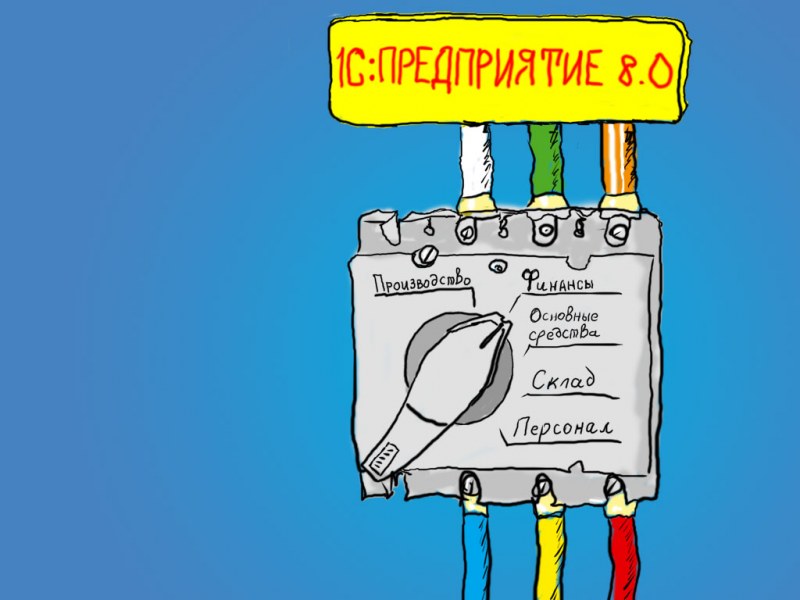 1С:ПРЕДПРИЯТИЕ 8.0
Производство
Финансы
Основные
средства
Склад
Персонал